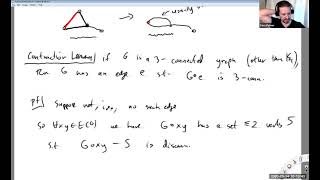 usually v.
Contraction Lemma) if G is a 3-connected graph (other than K₄),
then G has an edge e s.t. G∘e is 3-conn.
pf) Suppose not, i.e., no such edge
So ∀xy∈E(G) we have G∘xy has a set ≤2 verts S
s.t. G∘xy - S is disconn.